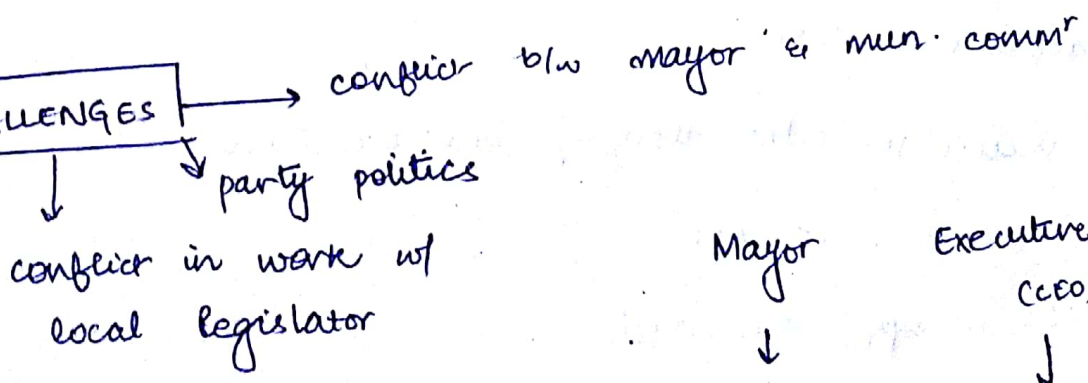 conflict b/w mayor & mun. commr
LLENGES
party politics
conflict in work w/
local legislator
Mayor Executive
(CEO